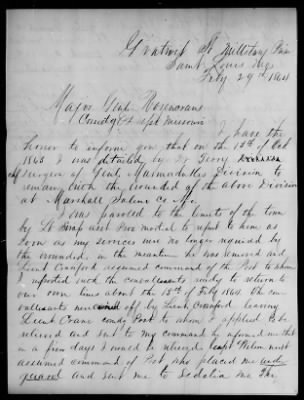 Gratiot St Military Prison
Saint Louis Mo
Feby 29th 1864
Major Genl Rosencrans
Comdg Dept Missouri
I have the
honor to inform you that on the 13th of Oct
1863 I was detailed by Dr Geory
chf Surgeon of Genl Marmadukes Division to
remain with the wounded of the above Division
at Marshall Saline Co Mo.
I was paroled to the limits of the town
by Lt who promised to report to them as
soon as my services were no longer required by
the wounded, in the meantime he was removed and
Lieut Crawford assumed command of the Post to whom
I reported with the convalescents ready to return to
our own lines about the 15th of Feby 1864 the con
valescents were off by Lieut Crawford leaving
Lieut Crane comdg Post to whom I applied to be
relieved and sent to my command he informed me that
in a few days I would be relieved Capt Wilson next
assumed command of Post who placed me under
guard and sent me to Sedalia Mo The